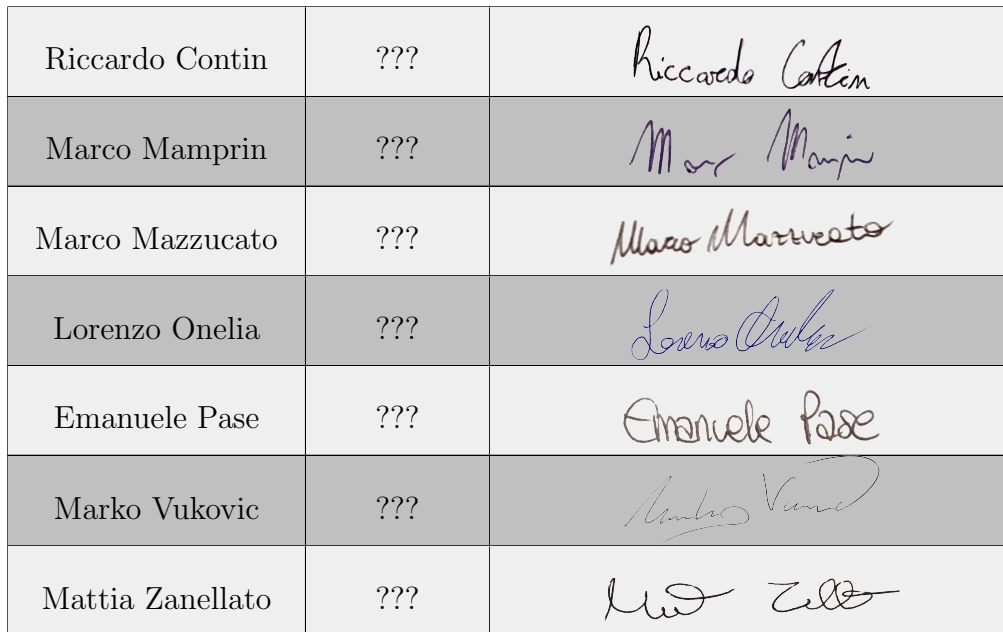 Riccardo Contin ??? Riccardo Contin
Marco Mamprin ??? Marco Mamprin
Marco Mazzucato ??? Marco Mazzucato
Lorenzo Onelia ??? Lorenzo Onelia
Emanuele Pase ??? Emanuele Pase
Marko Vukovic ???
Mattia Zanellato ???